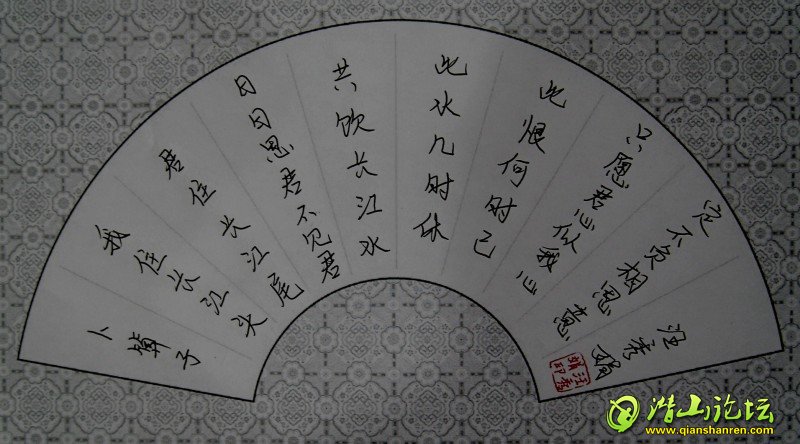 卜算子
我住长江头
君住长江尾
日日思君不见君
共饮长江水
此水几时休
此恨何时已
只愿君心似我心
定不负相思意
汪秀娟
汪秀娟印
潜山论坛
www.qianshanren.com